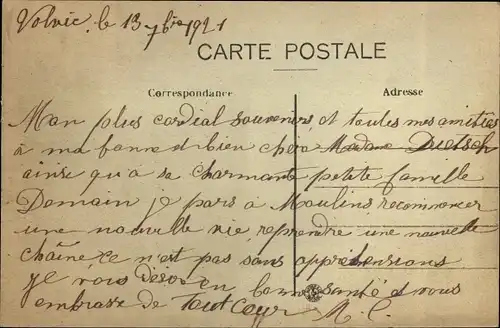 Volvic, le 13 7bre 1921
CARTE POSTALE
Correspondance
Adresse
Mon plus cordial souvenir, et toutes mes amitiés
à ma bonne et bien chère Madame Dietsch
ainsi qu'à sa charmante petite famille
Demain je pars à Moulins recommencer
une nouvelle vie, reprendre une nouvelle
chaîne ce n'est pas sans appréhensions
je vous désire en bonne santé et vous
embrasse de tout coeur M. C.